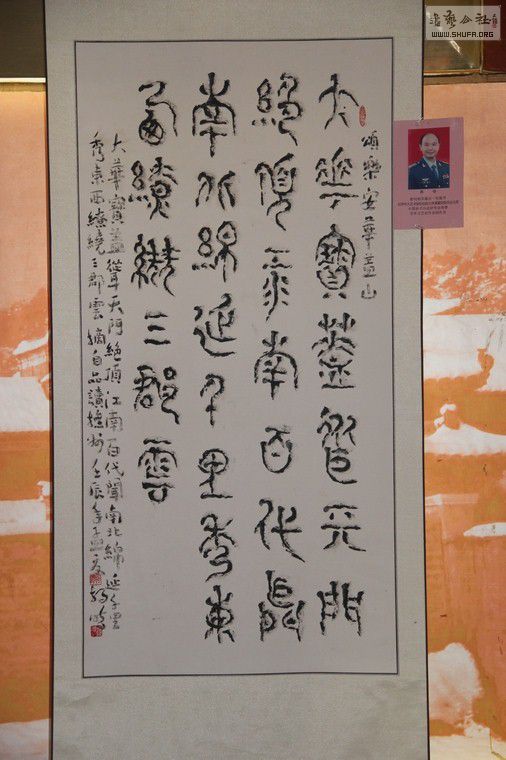 書藝公社
WWW.SHUFA.ORG
頌樂安華蓋山
大華寶蓋聳天門
絕頂江南百代聞
南北綿延千里秀東
西繚繞三郡雲
大華寶蓋聳天門絕頂江南百代聞南北綿延千里
秀東西繚繞三郡雲摘自品讀撫州壬辰年孟夏